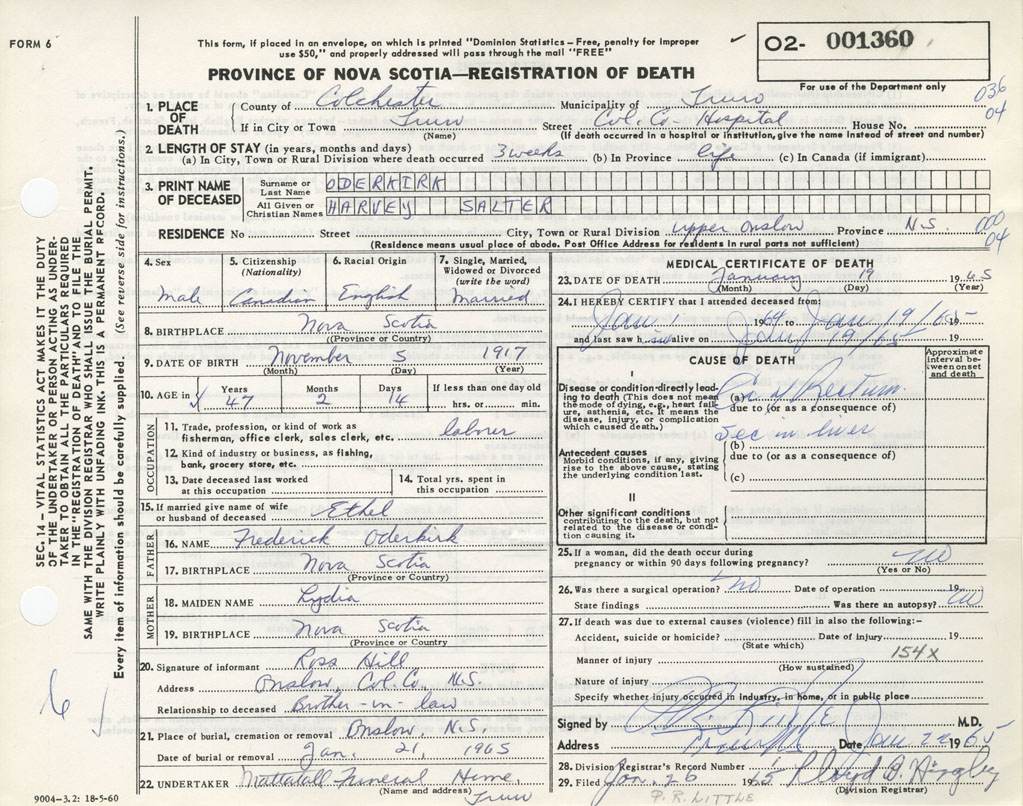 FORM 6
This form, if placed in an envelope, on which is printed "Dominion Statistics – Free, penalty for improper
use $50," and properly addressed will pass through the mail "FREE"
✓ 02- 001360
For use of the Department only
PROVINCE OF NOVA SCOTIA—REGISTRATION OF DEATH
036
04
1. PLACE OF DEATH { County of Colchester Municipality of Truro
If in City or Town Truro (Name) Street Col. Co. Hospital House No.
(If death occurred in a hospital or institution, give the name instead of street and number)
2. LENGTH OF STAY (in years, months and days)
(a) In City, Town or Rural Division where death occurred 3 weeks (b) In Province life (c) In Canada (if immigrant)
3. PRINT NAME OF DECEASED
Surname or Last Name ODERKIRK
All Given or Christian Names HARVEY SALTER
RESIDENCE No Street City, Town or Rural Division Upper Onslow Province N.S.
000
04
(Residence means usual place of abode. Post Office Address for residents in rural parts not sufficient)
SEC. 14 – VITAL STATISTICS ACT MAKES IT THE DUTY
OF THE UNDERTAKER OR PERSON ACTING AS UNDER-
TAKER TO OBTAIN ALL THE PARTICULARS REQUIRED
IN THE "REGISTRATION OF DEATH" AND TO FILE THE
SAME WITH THE DIVISION REGISTRAR WHO SHALL ISSUE THE BURIAL PERMIT.
WRITE PLAINLY WITH UNFADING INK. THIS IS A PERMANENT RECORD.
Every item of information should be carefully supplied. (See reverse side for instructions.)
6
4. Sex Male
5. Citizenship (Nationality) Canadian
6. Racial Origin English
7. Single, Married, Widowed or Divorced (write the word) Married
8. BIRTHPLACE Nova Scotia
(Province or Country)
9. DATE OF BIRTH November 5 1917
(Month) (Day) (Year)
10. AGE in { Years 47 Months 2 Days 14 If less than one day old hrs. or min.
OCCUPATION
11. Trade, profession, or kind of work as
fisherman, office clerk, sales clerk, etc. laborer
12. Kind of industry or business, as fishing,
bank, grocery store, etc.
13. Date deceased last worked
at this occupation
14. Total yrs. spent in
this occupation
15. If married give name of wife
or husband of deceased Ethel
FATHER
16. NAME Frederick Oderkirk
17. BIRTHPLACE Nova Scotia
(Province or Country)
MOTHER
18. MAIDEN NAME Lydia
19. BIRTHPLACE Nova Scotia
(Province or Country)
20. Signature of informant Ross Hill
Address Onslow, Col. Co. N.S.
Relationship to deceased Brother-in-law
21. Place of burial, cremation or removal Onslow N.S.
Date of burial or removal Jan. 21, 1965
22. UNDERTAKER Mattatall Funeral Home,
(Name and address) Truro
9004–3.2: 18-5-60
MEDICAL CERTIFICATE OF DEATH
23. DATE OF DEATH January 19 1965
(Month) (Day) (Year)
24. I HEREBY CERTIFY that I attended deceased from:
Jan 1 1964 to Jan 19/65 19
and last saw him alive on Jany 19/65 19
CAUSE OF DEATH
Approximate interval be-
tween onset and death
I
Disease or condition directly lead-
ing to death (This does not mean
the mode of dying, e.g., heart fail-
ure, asthenia, etc. It means the
disease, injury, or complication
which caused death.)
(a) Ca of Rectum.
due to (or as a consequence of)
Sec in liver
(b)
Antecedent causes
Morbid conditions, if any, giving
rise to the above cause, stating
the underlying condition last.
due to (or as a consequence of)
(c)
II
Other significant conditions
contributing to the death, but not
related to the disease or condi-
tion causing it.
25. If a woman, did the death occur during
pregnancy or within 90 days following pregnancy? no
(Yes or No)
26. Was there a surgical operation? no Date of operation 19
State findings Was there an autopsy? no
27. If death was due to external causes (violence) fill in also the following:–
Accident, suicide or homicide? Date of injury 19
(State which)
154X
Manner of injury
(How sustained)
Nature of injury
Specify whether injury occurred in industry, in home, or in public place
Signed by M.D.
Address Date Jan 22 1965
28. Division Registrar's Record Number
29. Filed Jan. 26 1965 Lloyd
(Division Registrar)
P. R. LITTLE